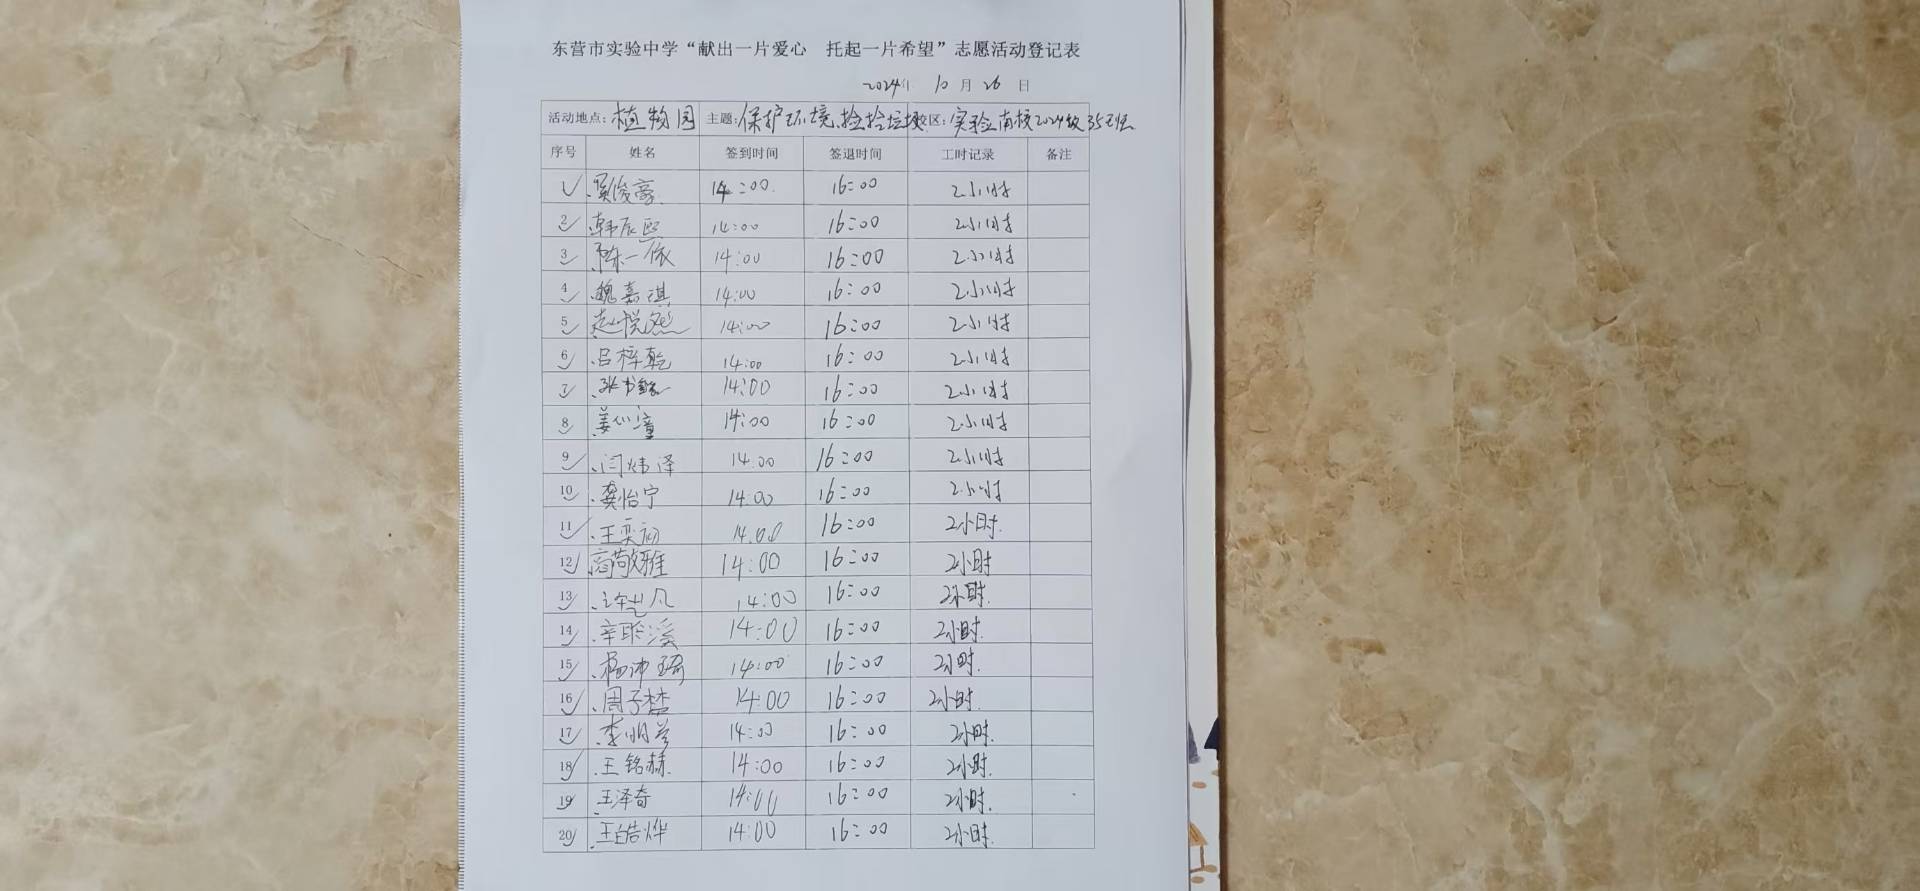 东营市实验中学“献出一片爱心 托起一片希望”志愿活动登记表
2024年 10月 26日
活动地点: 植物园 主题: 保护环境、捡拾垃圾 校区: 实验南校2024级35班
序号 姓名 签到时间 签退时间 工时记录 备注
1 俊豪 14:00 16:00 2小时
2 韩辰熙 14:00 16:00 2小时
3 陈一依 14:00 16:00 2小时
4 魏嘉琪 14:00 16:00 2小时
5 赵悦然 14:00 16:00 2小时
6 吕梓乾 14:00 16:00 2小时
7 张书 14:00 16:00 2小时
8 姜心潼 14:00 16:00 2小时
9 闫炜泽 14:00 16:00 2小时
10 龚怡宁 14:00 16:00 2小时
11 王奕初 14:00 16:00 2小时
12 商敬雅 14:00 16:00 2小时
13 许艺凡 14:00 16:00 2小时
14 辛聆溪 14:00 16:00 2小时
15 杨沛琦 14:00 16:00 2小时
16 周子楚 14:00 16:00 2小时
17 李明 14:00 16:00 2小时
18 王铭赫 14:00 16:00 2小时
19 王泽奇 14:00 16:00 2小时
20 王皓烨 14:00 16:00 2小时